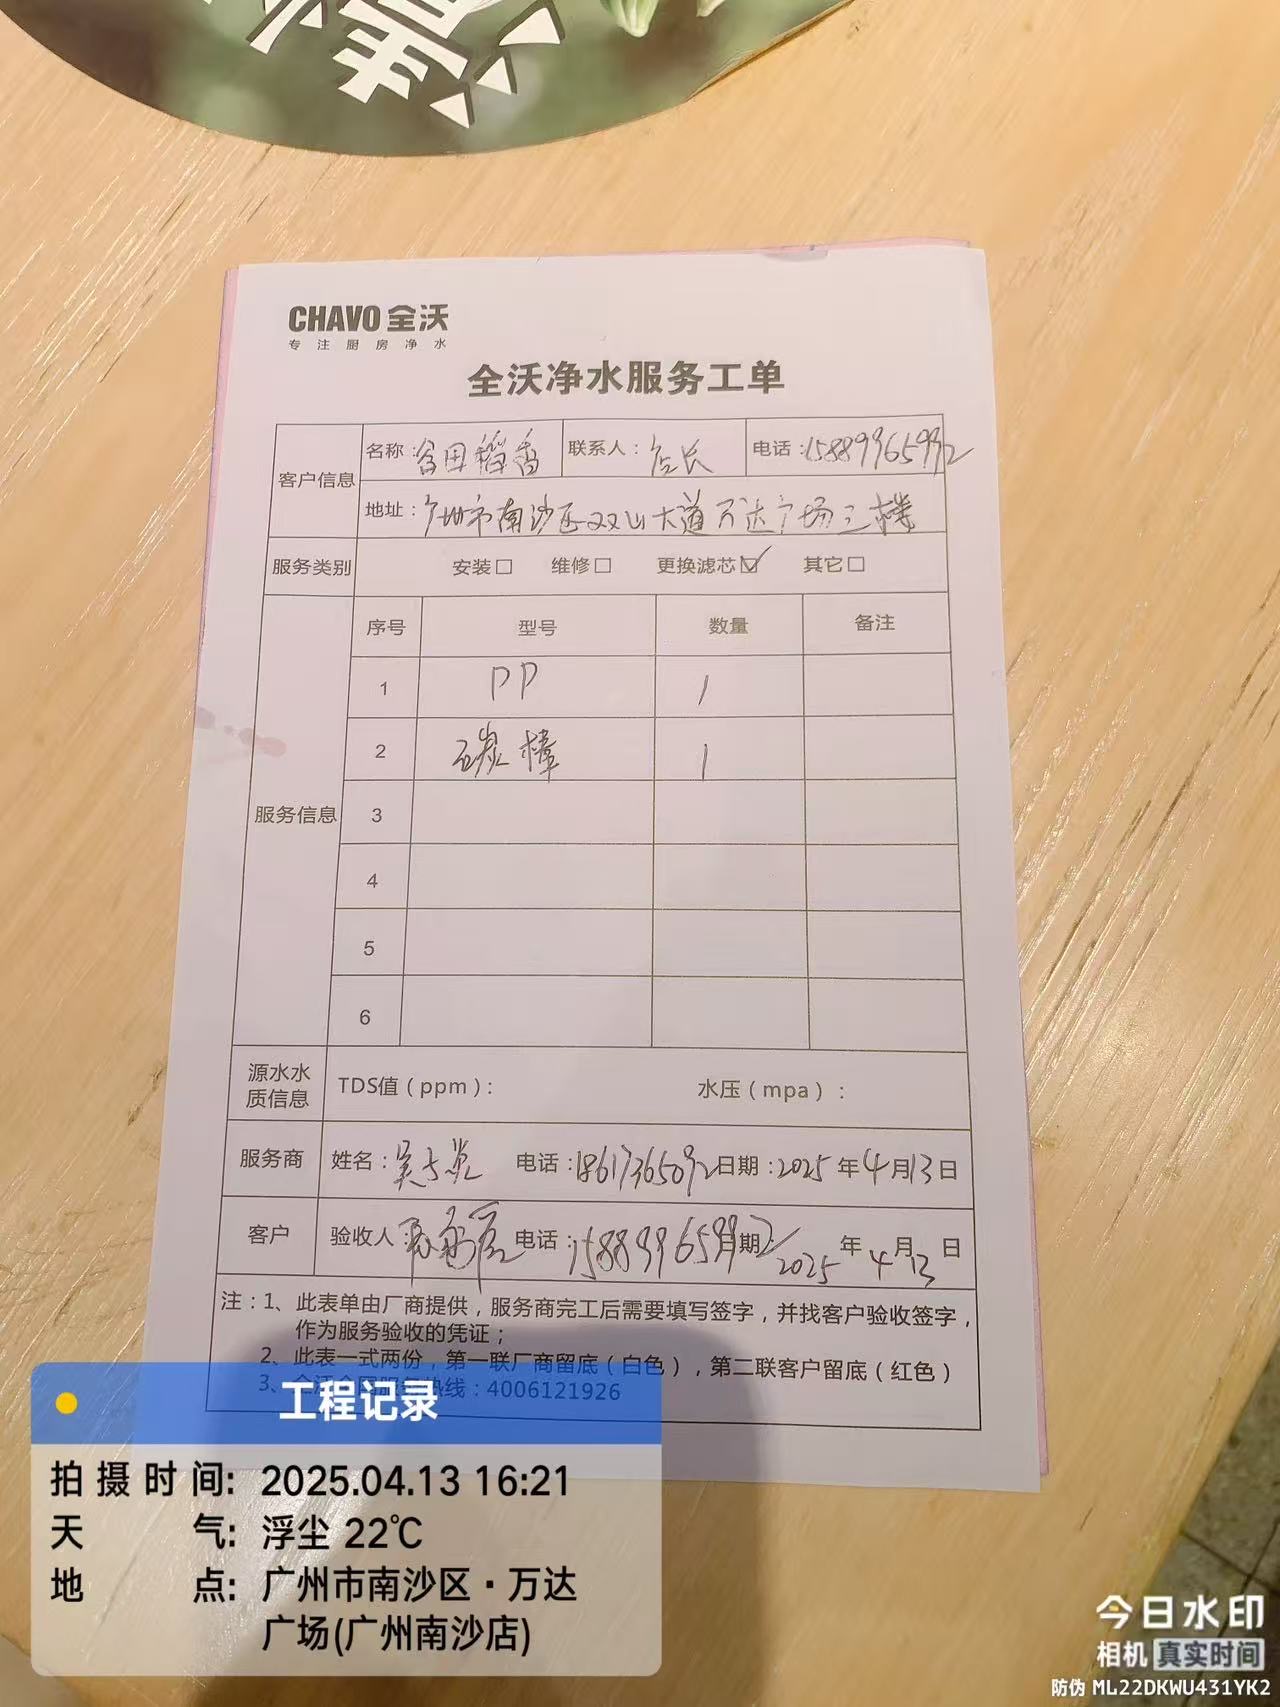 CHAVO 全沃
专注厨房净水
全沃净水服务工单
客户信息
名称：谷田稻香 联系人：店长 电话：15889965992
地址：广州市南沙区双山大道万达广场三楼
服务类别 安装□ 维修□ 更换滤芯☑ 其它□
服务信息
序号 型号 数量 备注
1 PP 1
2 碳棒 1
3
4
5
6
源水水质信息 TDS值（ppm）： 水压（mpa）：
服务商 姓名： 电话：18617365092 日期：2025年4月13日
客户 验收人： 电话：15889965992 日期 2025年4月13日
注：1、此表单由厂商提供，服务商完工后需要填写签字，并找客户验收签字，
作为服务验收的凭证；
2、此表一式两份，第一联厂商留底（白色），第二联客户留底（红色）
3、全沃全国服务热线：4006121926
工程记录
拍摄时间：2025.04.13 16:21
天气：浮尘 22℃
地点：广州市南沙区·万达
广场(广州南沙店)
今日水印
相机 真实时间
防伪 ML22DKWU431YK2